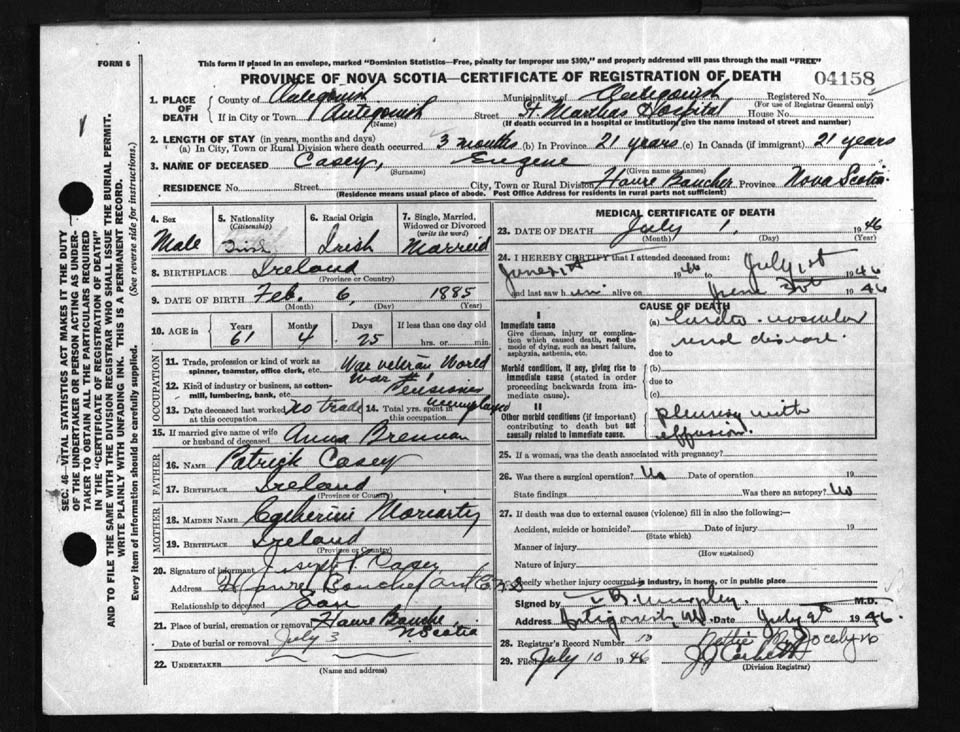 FORM 6
This form if placed in an envelope, marked "Dominion Statistics—Free, penalty for improper use $300," and properly addressed will pass through the mail "FREE"
PROVINCE OF NOVA SCOTIA—CERTIFICATE OF REGISTRATION OF DEATH 04158
1. PLACE OF DEATH
County of Antigonish Municipality of Antigonish Registered No.
(For use of Registrar General only)
If in City or Town Antigonish Street St. Marthas Hospital House No.
(Name) (If death occurred in a hospital or institution, give the name instead of street and number)
2. LENGTH OF STAY (in years, months and days)
(a) In City, Town or Rural Division where death occurred 3 months (b) In Province 21 years (c) In Canada (if immigrant) 21 years
3. NAME OF DECEASED Casey, Eugene
(Surname) (Given names)
RESIDENCE No. Street City, Town or Rural Division Havre Boucher Province Nova Scotia
(Residence means usual place of abode. Post Office Address for residents in rural parts not sufficient)
4. Sex Male
5. Nationality (Citizenship) Irish
6. Racial Origin Irish
7. Single, Married, Widowed or Divorced (write the word) Marreid
8. BIRTHPLACE Ireland
(Province or Country)
9. DATE OF BIRTH Feb. 6, 1885
(Month) (Day) (Year)
10. AGE in Years Months Days If less than one day old
61 4 25 hrs. or min.
OCCUPATION
11. Trade, profession or kind of work as spinner, teamster, office clerk, etc. War veteran World War #1
12. Kind of industry or business, as cotton-mill, lumbering, bank, etc. Pensioner
13. Date deceased last worked at this occupation no trade 14. Total yrs. spent in this occupation unemployed
15. If married give name of wife or husband of deceased Anna Brennan
FATHER
16. NAME Patrick Casey
17. BIRTHPLACE Ireland
(Province or Country)
MOTHER
18. MAIDEN NAME Catherine Moriarty
19. BIRTHPLACE Ireland
(Province or Country)
20. Signature of informant Joseph P. Casey
Address Havre Boucher Ant Co N.S
Relationship to deceased Son
21. Place of burial, cremation or removal Havre Bouche, N Scotia
Date of burial or removal July 3
22. UNDERTAKER
(Name and address)
MEDICAL CERTIFICATE OF DEATH
23. DATE OF DEATH July 1, 1946
(Month) (Day) (Year)
24. I HEREBY CERTIFY that I attended deceased from:
June 1st 1946 to July 1st 1946
and last saw him alive on June 30th 1946
CAUSE OF DEATH
I
Immediate cause
Give disease, injury or complication which caused death, not the mode of dying, such as heart failure, asphyxia, asthenia, etc.
(a) Cardio-vascular renal disease.
due to
Morbid conditions, if any, giving rise to immediate cause (stated in order proceeding backwards from immediate cause).
(b)
due to
(c)
II
Other morbid conditions (if important) contributing to death but not causally related to immediate cause.
pleurisy with effusion.
25. If a woman, was the death associated with pregnancy?
26. Was there a surgical operation? No Date of operation 19
State findings Was there an autopsy? No
27. If death was due to external causes (violence) fill in also the following:—
Accident, suicide or homicide? Date of injury 19
(State which)
Manner of injury
(How sustained)
Nature of injury
Specify whether injury occurred in industry, in home, or in public place
Signed by Murphy M.D.
Address Antigonish, Date July 1946
28. Registrar's Record Number 10
29. Filed July 10 1946
(Division Registrar)
SEC. 46—VITAL STATISTICS ACT MAKES IT THE DUTY
OF THE UNDERTAKER OR PERSON ACTING AS UNDERTAKER TO OBTAIN ALL THE PARTICULARS REQUIRED
IN THE "CERTIFICATE OF REGISTRATION OF DEATH"
AND TO FILE THE SAME WITH THE DIVISION REGISTRAR WHO SHALL ISSUE THE BURIAL PERMIT.
WRITE PLAINLY WITH UNFADING INK. THIS IS A PERMANENT RECORD.
Every item of information should be carefully supplied. (See reverse side for instructions.)